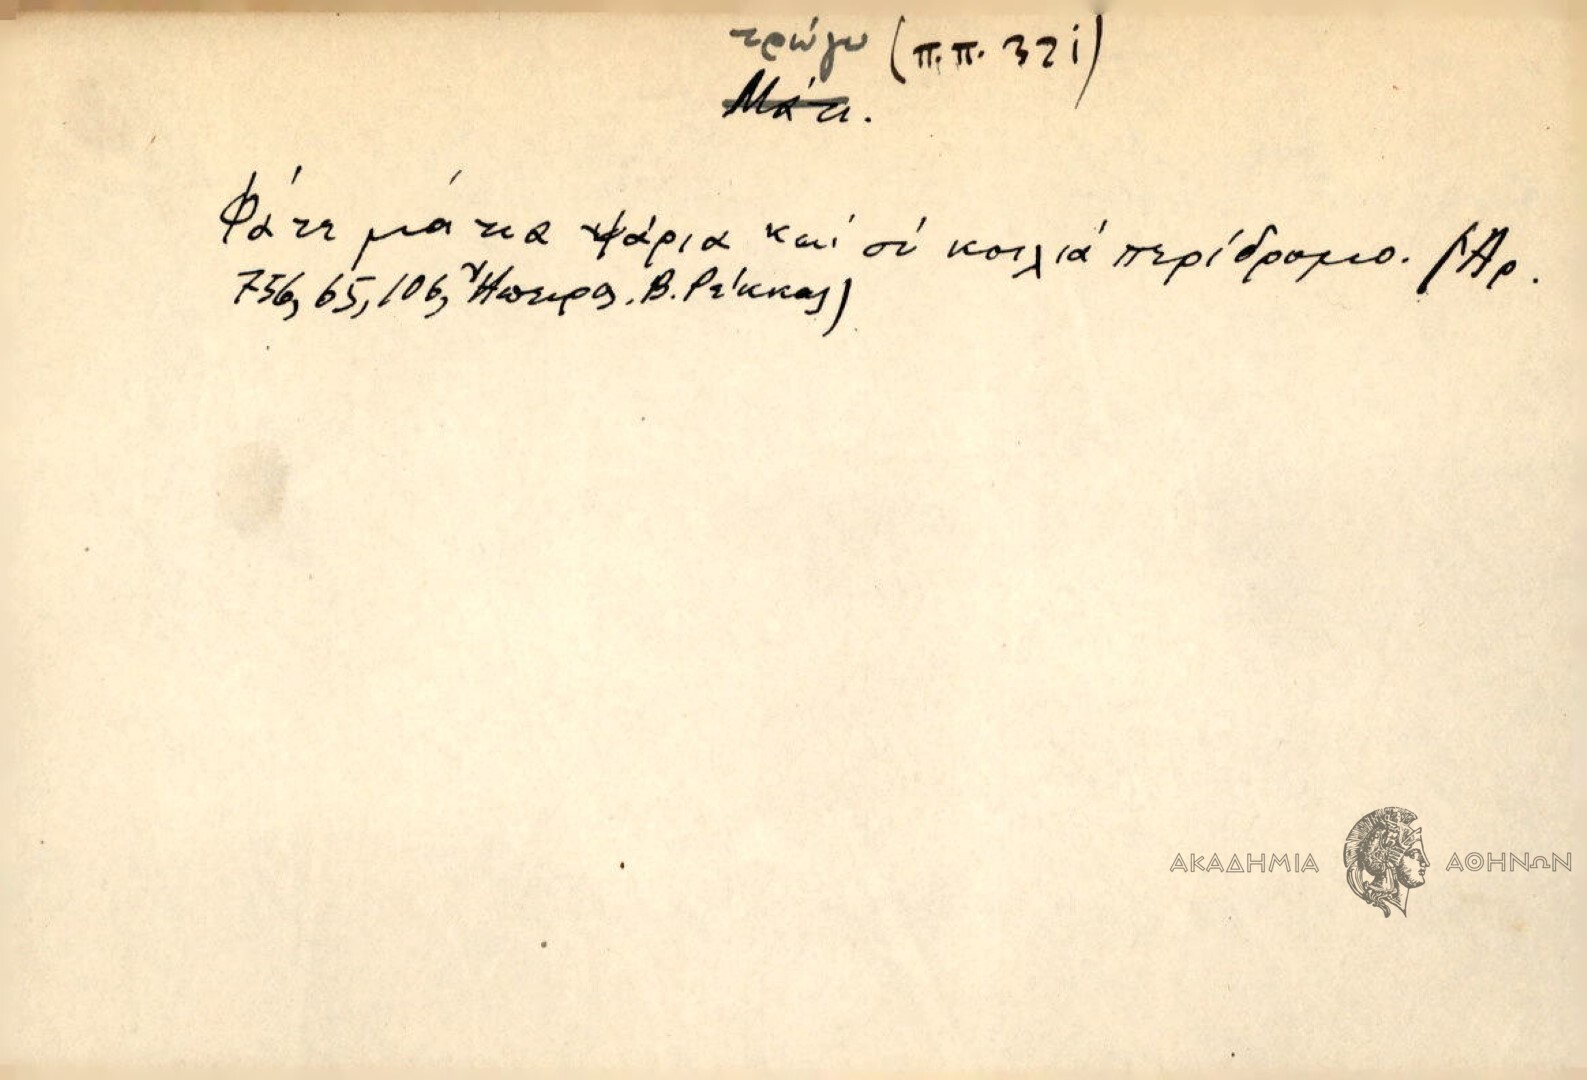 τρώγω (π.π. 32 i)
Μάτι.
Φάτε μάτια ψάρια καί σύ κοιλιά περίδρομο. (Ἀρ.
756, 65, 106, Ἤπειρος. Β. Ρέκκας)
ΑΚΑΔΗΜΙΑ ΑΘΗΝΩΝ